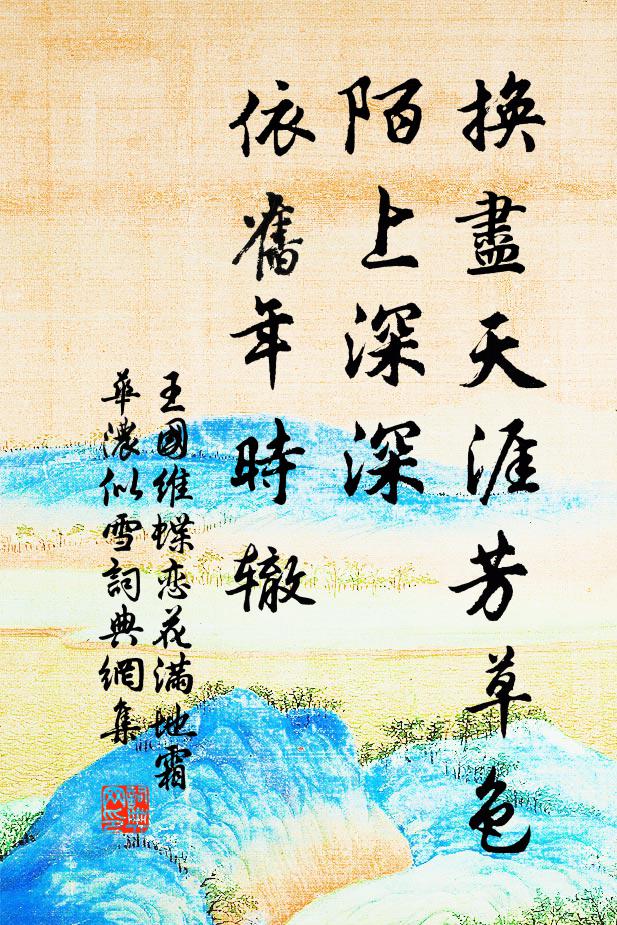 換盡天涯芳草色
陌上深深
依舊年時辙
王國維蝶恋花满地霜
華濃似雪詞典網集